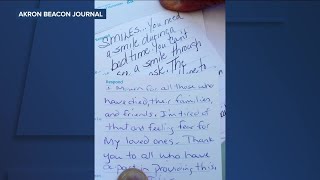 AKRON BEACON JOURNAL
SMILES... You need
a smile during a
bad time. You can't
see a smile through
a mask. The
Respond
I Mourn for all those who
have died, their families,
and friends. I'm tired of
that and feeling fear for
My loved ones. Thank
you to all who have
a part in providing this